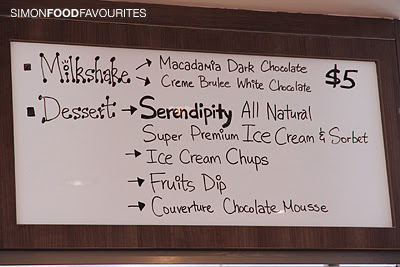 SIMONFOODFAVOURITES
▪ Milkshake → Macadamia Dark Chocolate $5
→ Creme Brulee White Chocolate
▪ Dessert → Serendipity All Natural
Super Premium Ice Cream & Sorbet
→ Ice Cream Chups
→ Fruits Dip
→ Couverture Chocolate Mousse